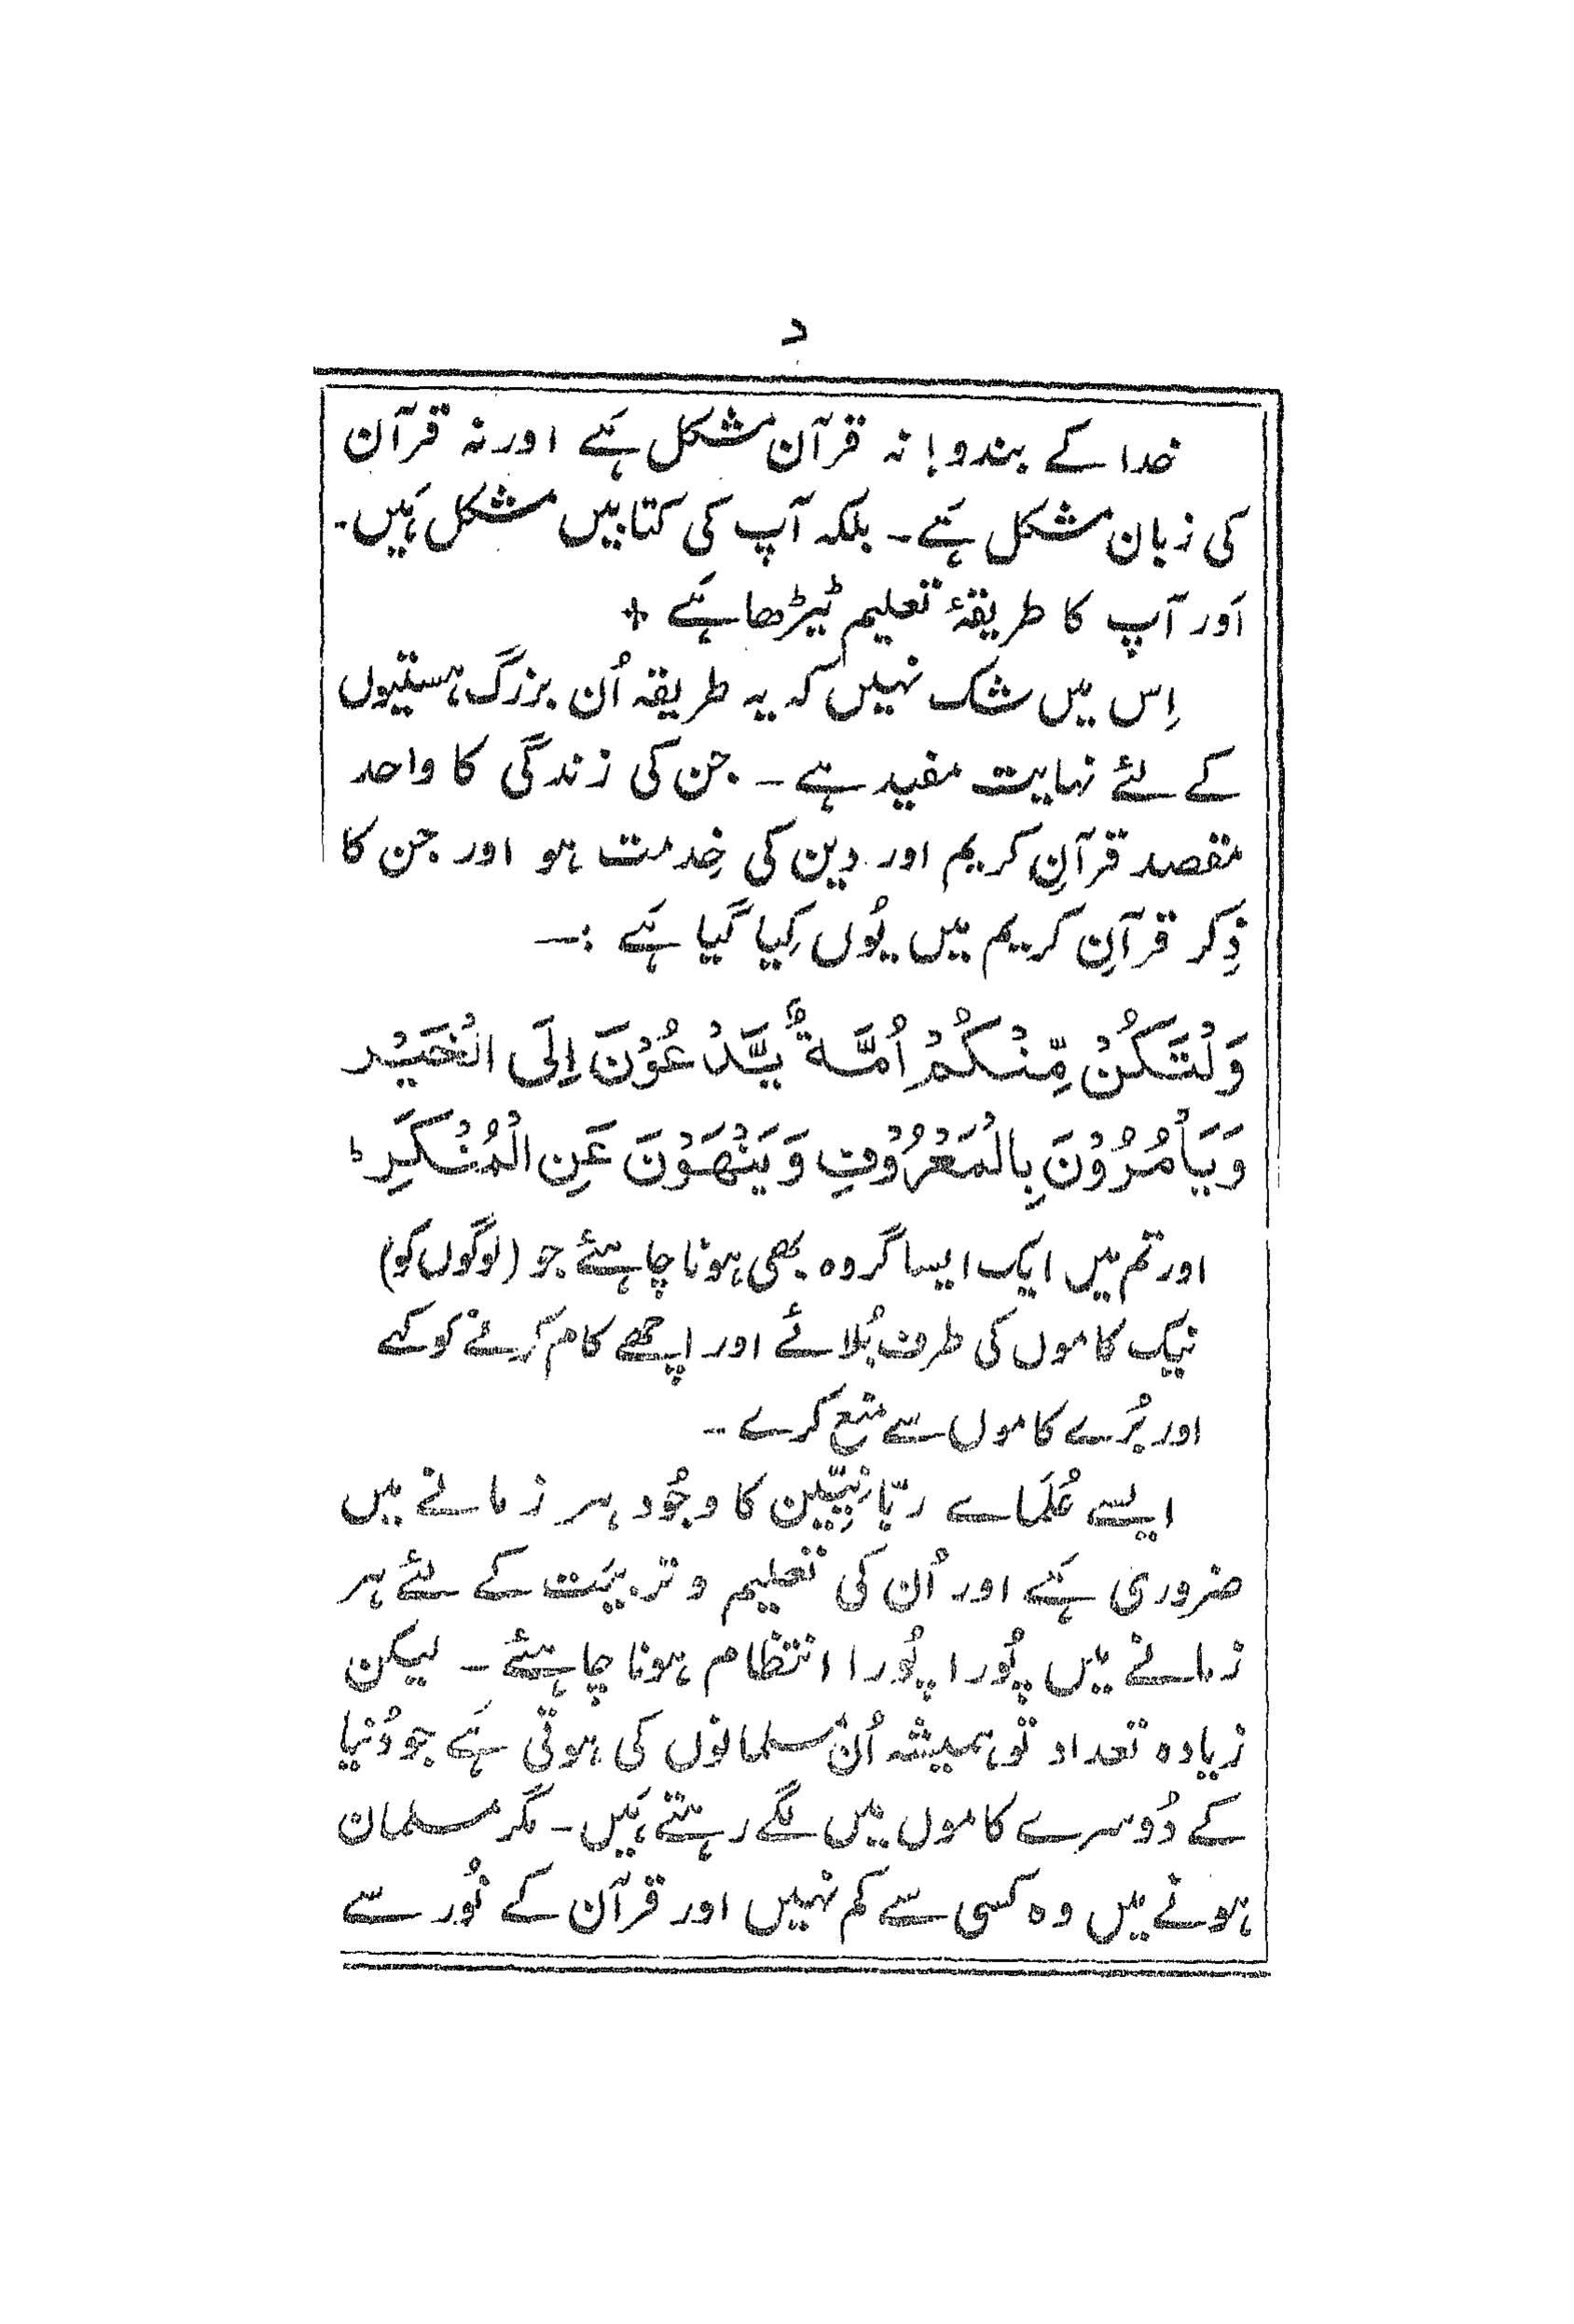 د
خدا کے بندو! نہ قرآن مشکل ہَے اور نہ قرآن
کی زبان مشکل ہَے۔ بلکہ آپ کی کتابیں مشکل ہَیں۔
اَور آپ کا طریقۂ تعلیم ٹیڑھا ہَے +
اِس میں شک نہیں کہ یہ طریقہ اُن بزرگ ہستیوں
کے لئے نہایت مفید ہے۔ جن کی زندگی کا واحد
مقصد قرآنِ کریم اور دین کی خِدمت ہو اور جن کا
ذِکر قرآنِ کریم میں یُوں کِیا گیا ہَے :۔
وَلْتَكُنْ مِّنْكُمْ اُمَّةٌ يَّدْعُوْنَ اِلَى الْخَيْرِ
وَيَأْمُرُوْنَ بِالْمَعْرُوْفِ وَيَنْهَوْنَ عَنِ الْمُنْكَرِ ط
اور تم میں ایک ایسا گروہ بھی ہونا چاہئے جو (لوگوں کو)
نیک کاموں کی طرف بُلائے اور اچھے کام کرنے کو کہے
اور بُرے کاموں سے منع کرے۔
ایسے عُلَماے ربّانِیّین کا وجُود ہر زمانے میں
ضروری ہَے اور اُن کی تعلیم و تربیَت کے لئے ہر
زمانے میں پُورا پُورا انتظام ہونا چاہئے۔ لیکن
زیادہ تعداد تو ہمیشہ اُن مسلمانوں کی ہوتی ہَے جو دُنیا
کے دُوسرے کاموں میں لگے رہتے ہَیں۔ مگر مسلمان
ہونے میں وہ کسی سے کم نہیں اور قرآن کے نُور سے